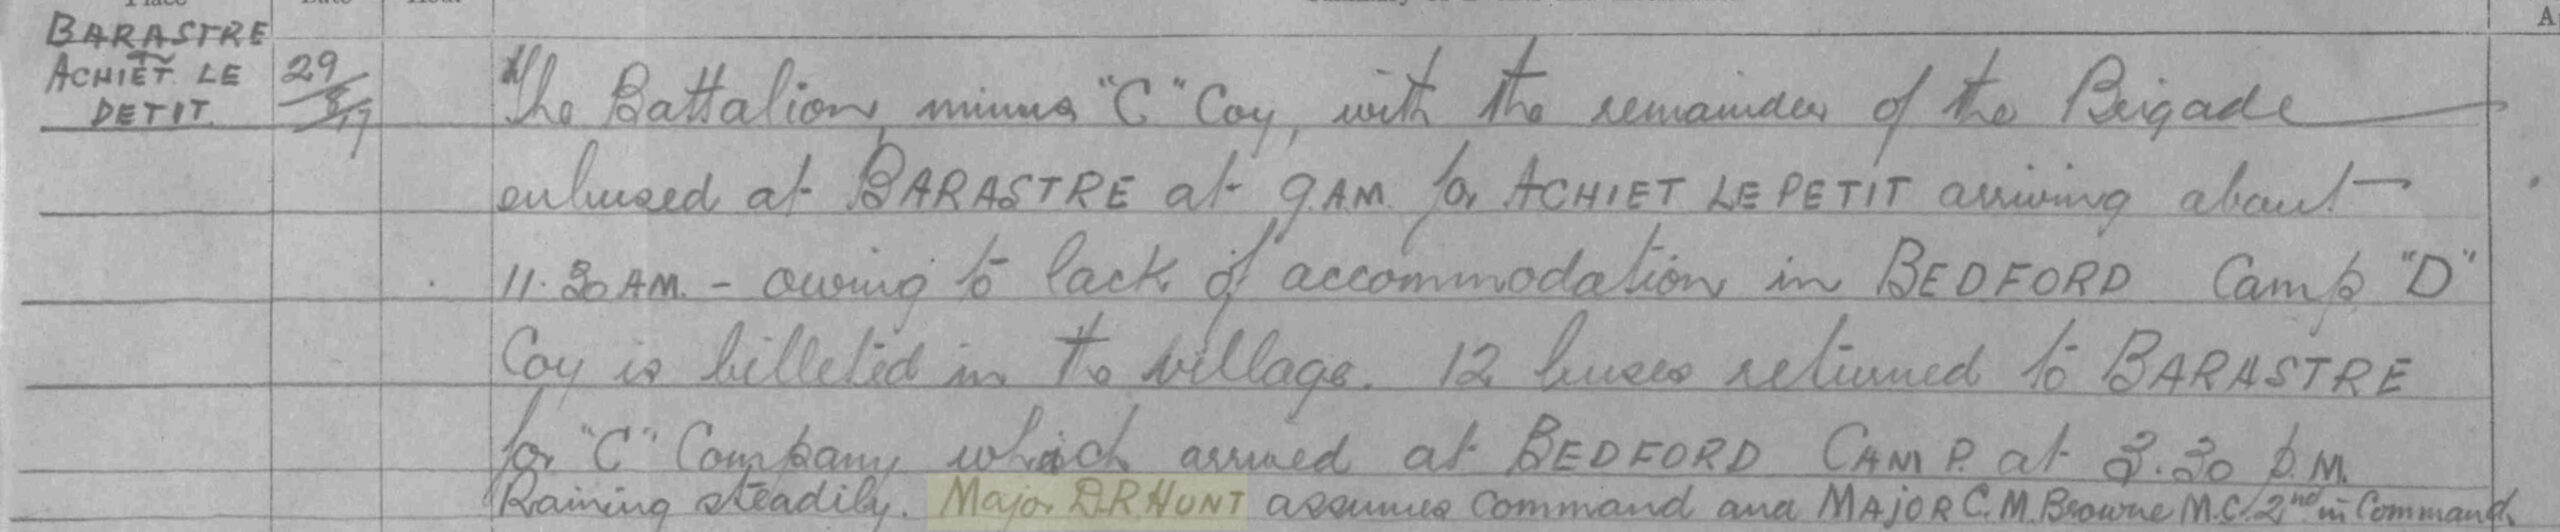 Place Date Hour Summary of Events and Information
A
BARASTRE
to
ACHIET LE
PETIT.
29/8/17
The Battalion, minus "C" Coy, with the remainder of the Brigade
enbused at BARASTRE at 9.AM. for ACHIET LE PETIT arriving about
11.30 AM. - owing to lack of accommodation in BEDFORD Camp "D"
Coy is billeted in the village. 12 buses returned to BARASTRE
for "C" Company which arrived at BEDFORD CAMP. at 3.30 P.M.
Raining steadily. Major D.R. HUNT assumes command and MAJOR C.M. Browne M.C. 2nd in Command.